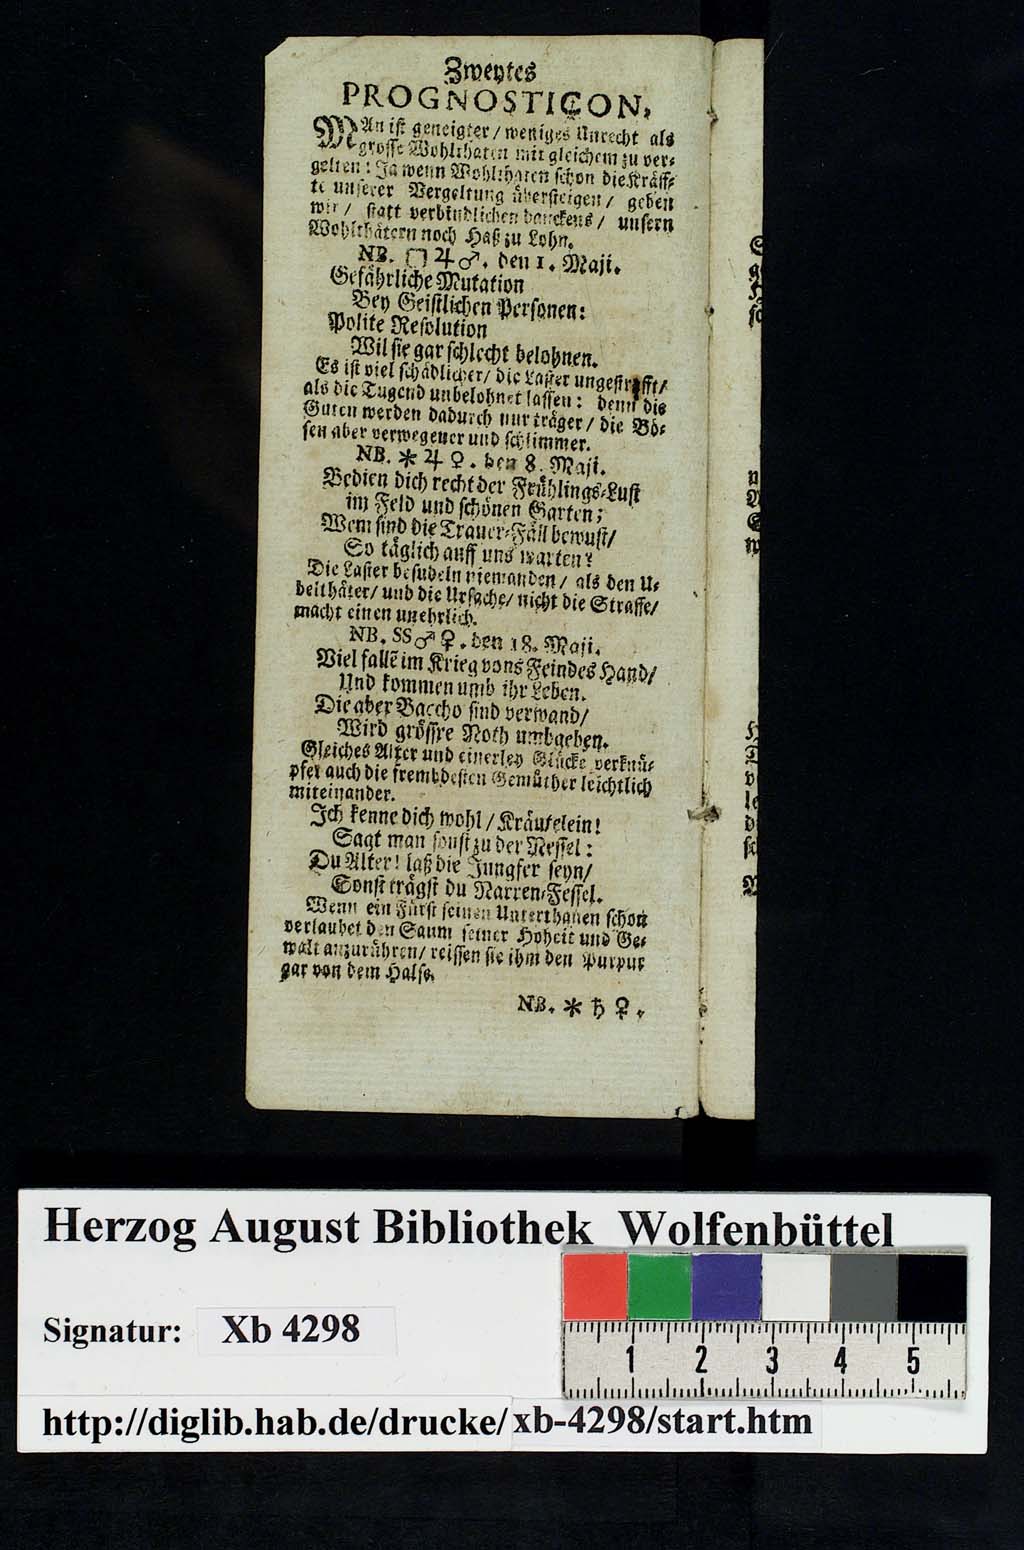 Zweytes
PROGNOSTICON,
MAn ist geneigter / weniges Unrecht als
grosse Wohlthaten mit gleichem zu ver-
gelten: Ja wenn Wohlthaten schon die Kräff-
te unserer Vergeltung übersteigen / geben
wir / statt verbindlichen danckens / unsern
Wohlthätern noch Haß zu Lohn.
NB. □ ♃ ♂. den 1. Maji.
Gefährliche Mutation
Bey Geistlichen Personen:
Polite Resolution
Wil sie gar schlecht belohnen.
Es ist viel schädlicher / die Laster ungestrafft /
als die Tugend unbelohnet lassen: denn die
Guten werden dadurch nur träger / die Bö-
sen aber verwegener und schlimmer.
NB. ⚹ ♃ ♀. den 8. Maji.
Bedien dich recht der Frühlings-Lust
im Feld und schönen Garten;
Wem sind die Trauer-Fäll bewust /
So täglich auff uns warten?
Die Laster besudeln niemanden / als den U-
belthäter / und die Ursache / nicht die Straffe /
macht einen unehrlich.
NB. SS ♂ ♀. den 18. Maji.
Viel fallẽ im Krieg vons Feindes Hand /
Und kommen umb ihr Leben.
Die aber Baccho sind verwand /
Wird grössre Noth umbgeben.
Gleiches Alter und einerley Glücke verknü-
pfet auch die frembdesten Gemüther leichtlich
miteinander.
Ich kenne dich wohl / Kräutelein!
Sagt man sonst zu der Nessel:
Du Alter! laß die Jungfer seyn /
Sonst trägst du Narren-Fessel.
Wenn ein Fürst seinen Unterthanen schon
verlaubet den Saum seiner Hoheit und Ge-
walt anzurühren / reissen sie ihm den Purpur
gar von dem Halse.
NB. ⚹ ♄ ♀.
Herzog August Bibliothek Wolfenbüttel
Signatur: Xb 4298
1 2 3 4 5
http://diglib.hab.de/drucke/xb-4298/start.htm